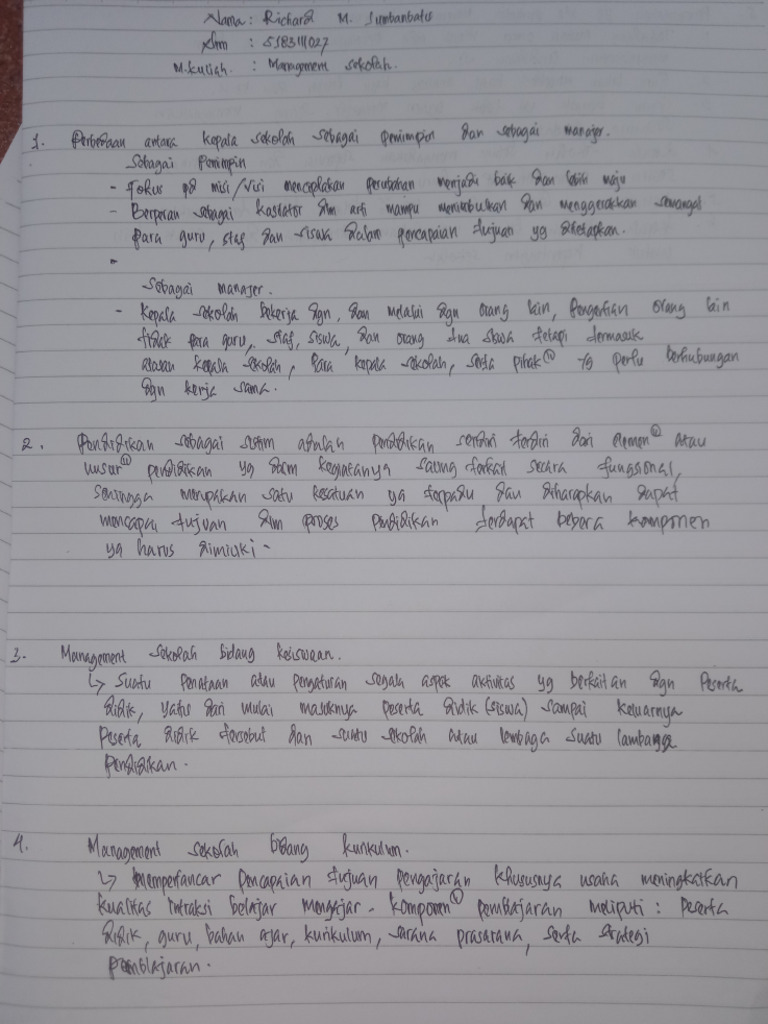 Nama : Richard M. Simbanbatu
Nim : 5183111027
M.kuliah : Management sekolah.
1. Perbedaan antara kepala sekolah sebagai pemimpin dan sebagai manajer.
Sebagai Pemimpin
- Fokus pd misi/visi menciptakan perubahan menjadi baik dan lebih maju
- Berperan sebagai dlm arti mampu menimbulkan dan menggerakkan semangat
para guru, staf dan siswa dalam pencapaian tujuan yg ditetapkan.
-
Sebagai manajer.
- Kepala sekolah bekerja dgn, dan melalui dgn orang lain, pengertian orang lain
tidak para guru, staf, siswa, dan orang tua siswa tetapi termasuk
atasan kepala sekolah, para kepala sekolah, serta pihak" yg perlu berhubungan
dgn kerja sama.
2. Pendidikan sebagai sistim adalah pendidikan sendiri terdiri dari elemen" atau
unsur" pendidikan yg dlm kegiatanya saling terkait secara fungsional,
sehingga merupakan satu kesatuan yg terpadu dan diharapkan dapat
mencapai tujuan dlm proses pendidikan terdapat bebera komponen
yg harus dimiliki -
3. Management sekolah bidang kesiswaan.
↳ Suatu penataan atau pengaturan segala aspek aktivitas yg berkaitan dgn peserta
didik, yaitu dari mulai masuknya peserta didik (siswa) sampai keluarnya
peserta didik tersebut dari suatu sekolah atau lembaga suatu lambaga
Pendidikan.
4. Management sekolah bidang kurikulum.
↳ Memperlancar pencapaian tujuan pengajaran khususnya usaha meningkatkan
kualitas intraksi belajar mengajar - komponen" pembajaran meliputi : peserta
didik, guru, bahan ajar, kurikulum, sarana prasarana, serta strategi
pemblajaran.